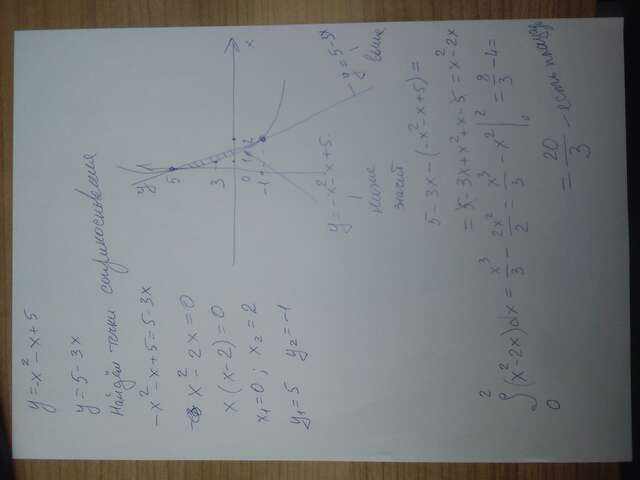 y=x²-x+5
y=5-3x
Найдём точки соприкосновения
-x²-x+5=5-3x
x²-2x=0
x(x-2)=0
x₁=0; x₂=2
y₁=5 y₂=-1
y
5
3
0
1
2
-1
x
y=-x²-x+5
ниже
значит
y=5-3x
выше
5-3x-(-x²-x+5)=
=5-3x+x²+x-5=x²-2x
2
∫(x²-2x)dx=x³/3-2x²/2=x³/3-x²|²₀=8/3-4=
0
=20/3-есть площадь